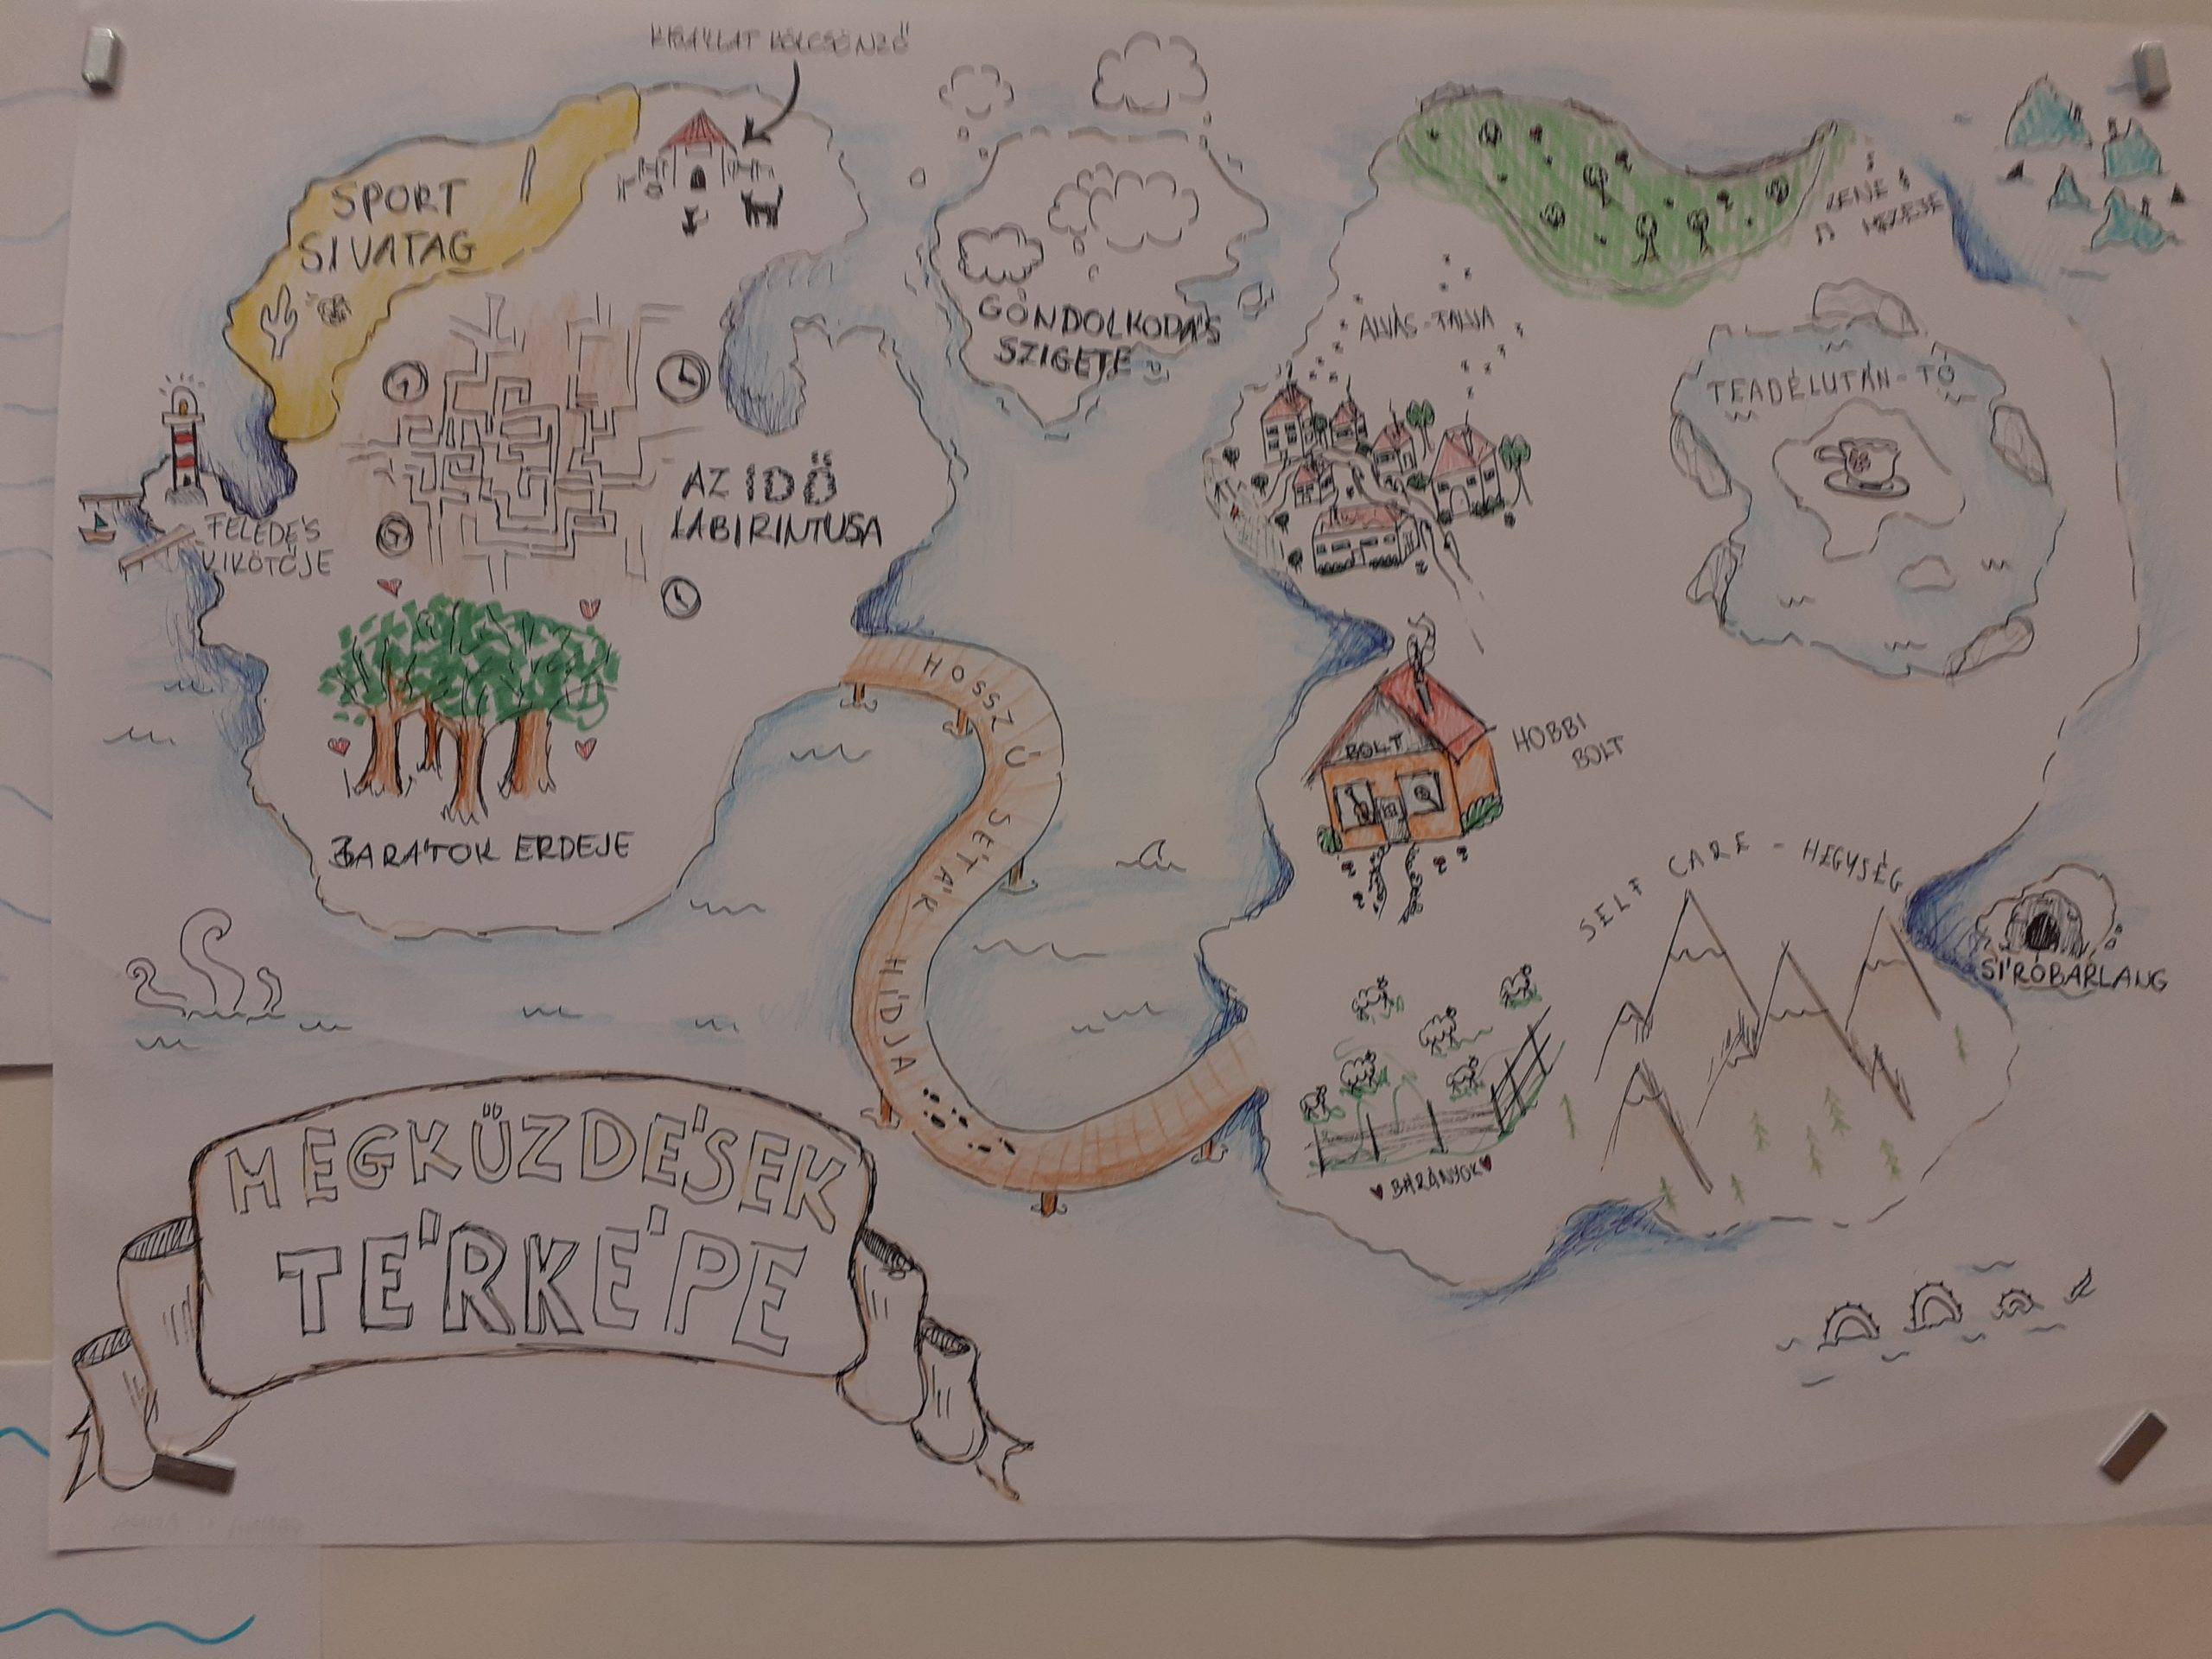 KISÁLLAT KÖLCSÖNZŐ
SPORT
SIVATAG
GONDOLKODÁS
SZIGETE
ZENE
MEZEJE
ALVÁS-FALVA
TEADÉLUTÁN-TÓ
AZ IDŐ
LABIRINTUSA
FELEDÉS
KIKÖTŐJE
BARÁTOK ERDEJE
HOSSZÚ SÉTÁK HÍDJA
BOLT
HOBBI
BOLT
SELF CARE - HEGYSÉG
SÍRÓBARLANG
BÁRÁNYOK
MEGKÜZDÉSEK
TÉRKÉPE